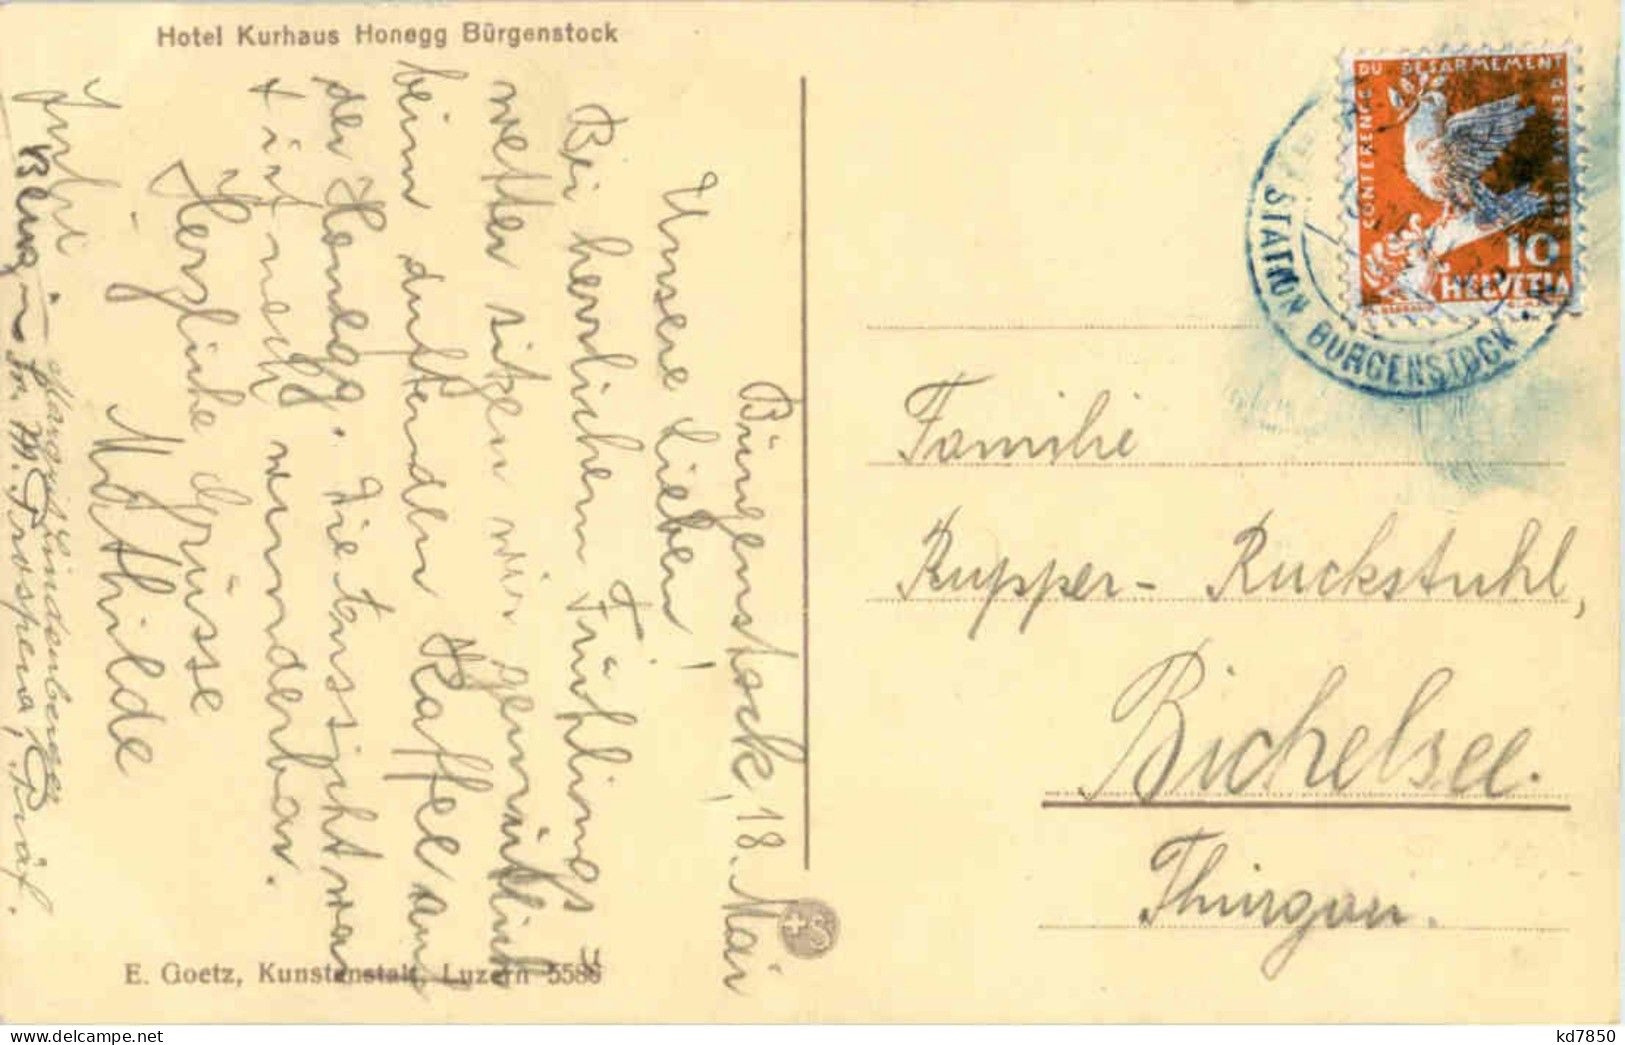 Hotel Kurhaus Honegg Bürgenstock
Bürgenstock, 18. Mai
Unsere Lieben!
Bei herrlichem Frühlings=
wetter sitzen wir gemütlich
beim duftenden Kaffee auf
der Honegg. Die Fernsicht war
wunderbar.
Herzliche Grüsse
Mathilde
Lindenberger
E. Goetz, Kunstanstalt, Luzern 5586
CONFERENCE DU DESARMEMENT GENEVE 1932
10
HELVETIA
STATION BÜRGENSTOCK
Familie
Rupper- Ruckstuhl,
Bichelsee.
Thurgau.
kd7850